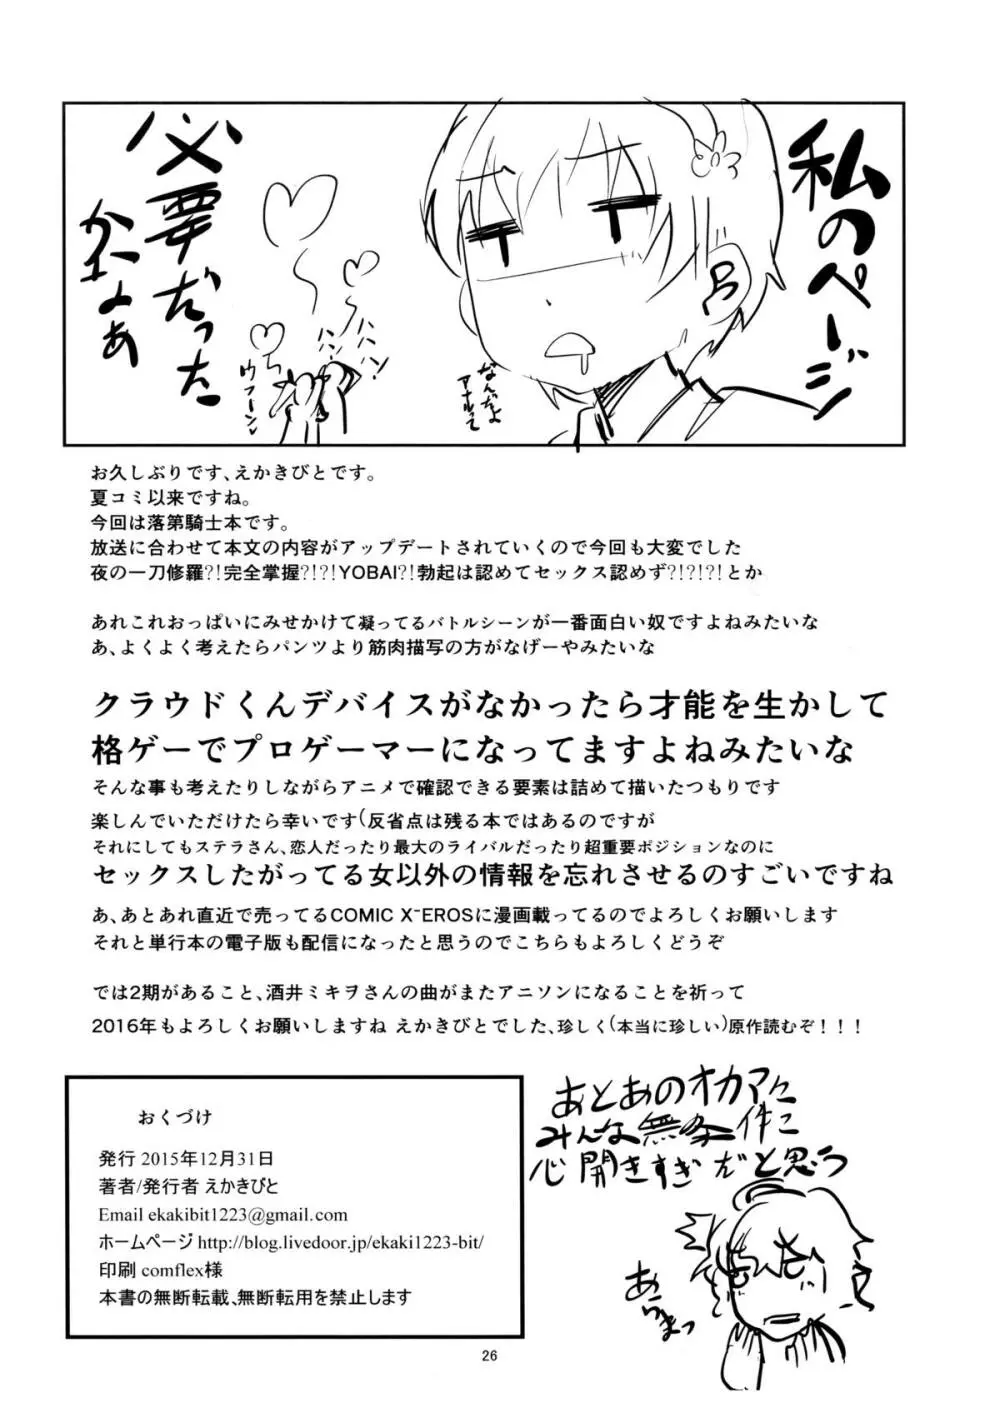 私のページ
必要だった
かなぁ
なんだよ
アナルって
ウフーン♥
お久しぶりです、えかきびとです。
夏コミ以来ですね。
今回は落第騎士本です。
放送に合わせて本文の内容がアップデートされていくので今回も大変でした
夜の一刀修羅?!完全掌握?!?!YOBAI?!勃起は認めてセックス認めず?!?!?!とか
あれこれおっぱいにみせかけて凝ってるバトルシーンが一番面白い奴ですよねみたいな
あ、よくよく考えたらパンツより筋肉描写の方がなげーやみたいな
クラウドくんデバイスがなかったら才能を生かして
格ゲーでプロゲーマーになってますよねみたいな
そんな事も考えたりしながらアニメで確認できる要素は詰めて描いたつもりです
楽しんでいただけたら幸いです(反省点は残る本ではあるのですが
それにしてもステラさん、恋人だったり最大のライバルだったり超重要ポジションなのに
セックスしたがってる女以外の情報を忘れさせるのすごいですね
あ、あとあれ直近で売ってるCOMIC X-EROSに漫画載ってるのでよろしくお願いします
それと単行本の電子版も配信になったと思うのでこちらもよろしくどうぞ
では2期があること、酒井ミキヲさんの曲がまたアニソンになることを祈って
2016年もよろしくお願いしますね えかきびとでした、珍しく(本当に珍しい)原作読むぞ！！！
おくづけ
発行 2015年12月31日
著者/発行者 えかきびと
Email ekakibit1223@gmail.com
ホームページ http://blog.livedoor.jp/ekaki1223-bit/
印刷 comflex様
本書の無断転載、無断転用を禁止します
あとあのオカマに
みんな無条件に
心開きすぎだと思う
あらまっ
26